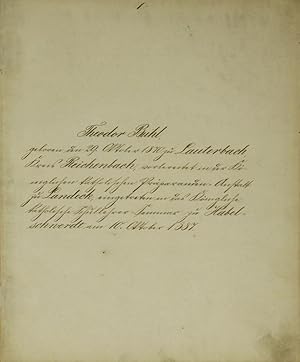 Theodor Buhl
geboren den 29. Oktober 1870 zu Lauterbach
Kreis Reichenbach, vorbereitet in der Kö-
niglichen katholischen Präparanden-Anstalt
zu Landeck, eingetreten in das Königliche
katholische Schullehrer-Seminar zu Habel-
schwerdt am 10. Oktober 1887.